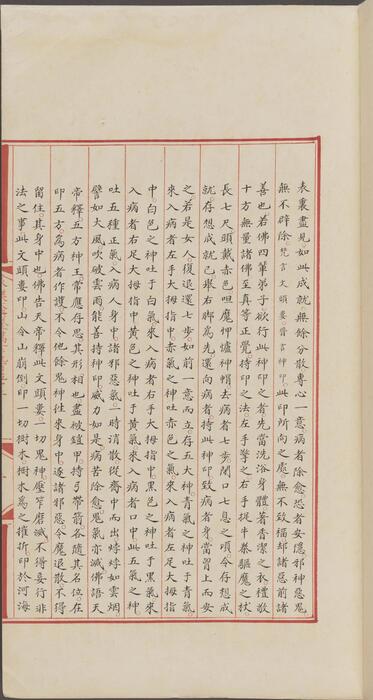 表裏盡見如此成就無餘分散專心一意病者除愈恐者安隱邪神惡鬼
無不辟除梵言文頭婁晉言神印此印所向之處無不致福却諸惡前諸
善也若佛四輩弟子欲行此神印之者先當洗浴身體著香潔之衣禮敬
十方無量諸佛至真等正覺持印之法左手擎之右手捉牛秦驅魔之杖
長七尺頭戴赤色呾魔怛爐神帽去病者七步閉口七息之頃令存想成
就存想成就已舉右脚為先還向病者持此神印致病者身當習上而安
之若是女人復退還七步如前一意而立存五大神青氣之神吐于青氣
來入病者左手大拇指中赤氣之神吐赤色之氣來入病者左足大拇指
中白色之神吐于白氣來入病者右手大拇指中黑色之神吐于黑氣來
入病者右足大拇指中黃色之神吐于黃氣來入病者口中此五氣之神
吐五種正氣入病人身中諸邪惡氣一時消散從齊中而出㶿㶿如雲烟
譬如大風吹破雲雨能善持神印威力如是病苦除愈鬼氣亦滅佛語天
帝釋五方神王常應存思其形相也盡被鎧甲持弓帶箭各隨其名位在
印五方為病者作護不令他餘鬼神往來身中逐諸邪惡令魔退散不得
留住其身中也佛告天帝釋此文頭婁一切鬼神壓笮磨滅不得妄行非
法之事此文頭婁印山令山崩倒印一切樹木樹木為之摧折印於河海